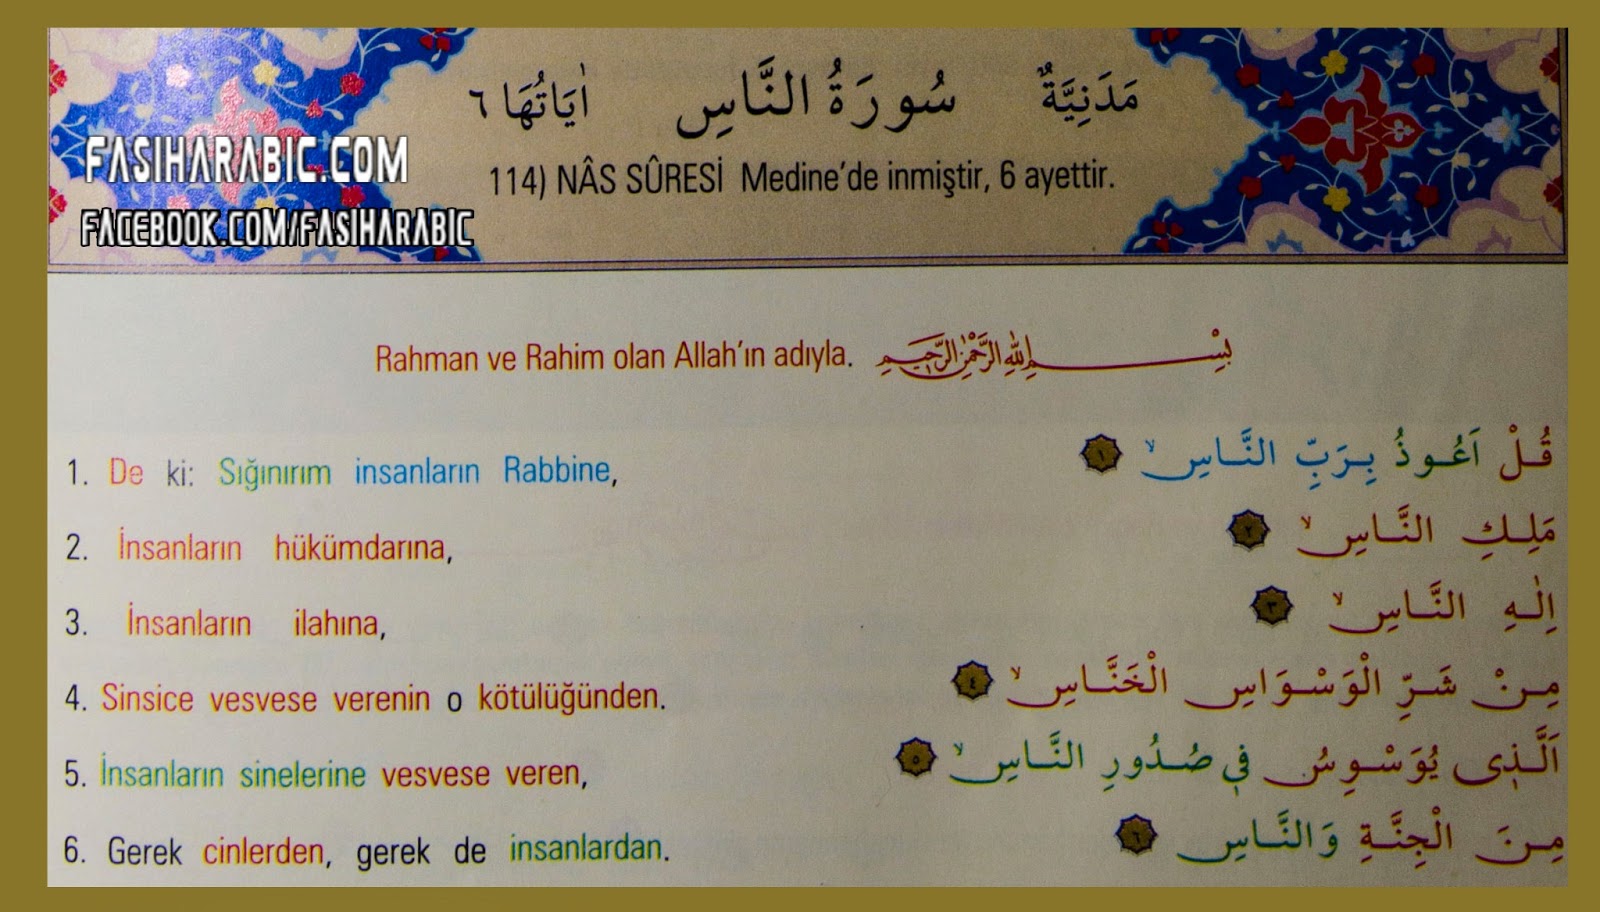 مَدَنِيَّةٌ سُورَةُ النَّاسِ اٰيَاتُهَا ٦
FASIHARABIC.COM
114) NÂS SÛRESİ Medine’de inmiştir, 6 ayettir.
FACEBOOK.COM/FASIHARABIC
Rahman ve Rahim olan Allah’ın adıyla. بِسْمِ اللهِ الرَّحْمٰنِ الرَّحِيمِ
1. De ki: Sığınırım insanların Rabbine, قُلْ اَعُوذُ بِرَبِّ النَّاسِۙ ١
2. İnsanların hükümdarına, مَلِكِ النَّاسِۙ ٢
3. İnsanların ilahına, اِلٰهِ النَّاسِۙ ٣
4. Sinsice vesvese verenin o kötülüğünden. مِنْ شَرِّ الْوَسْوَاسِ الْخَنَّاسِۙ ٤
5. İnsanların sinelerine vesvese veren, اَلَّذٖى يُوَسْوِسُ فٖى صُدُورِ النَّاسِۙ ٥
6. Gerek cinlerden, gerek de insanlardan. مِنَ الْجِنَّةِ وَالنَّاسِ ٦